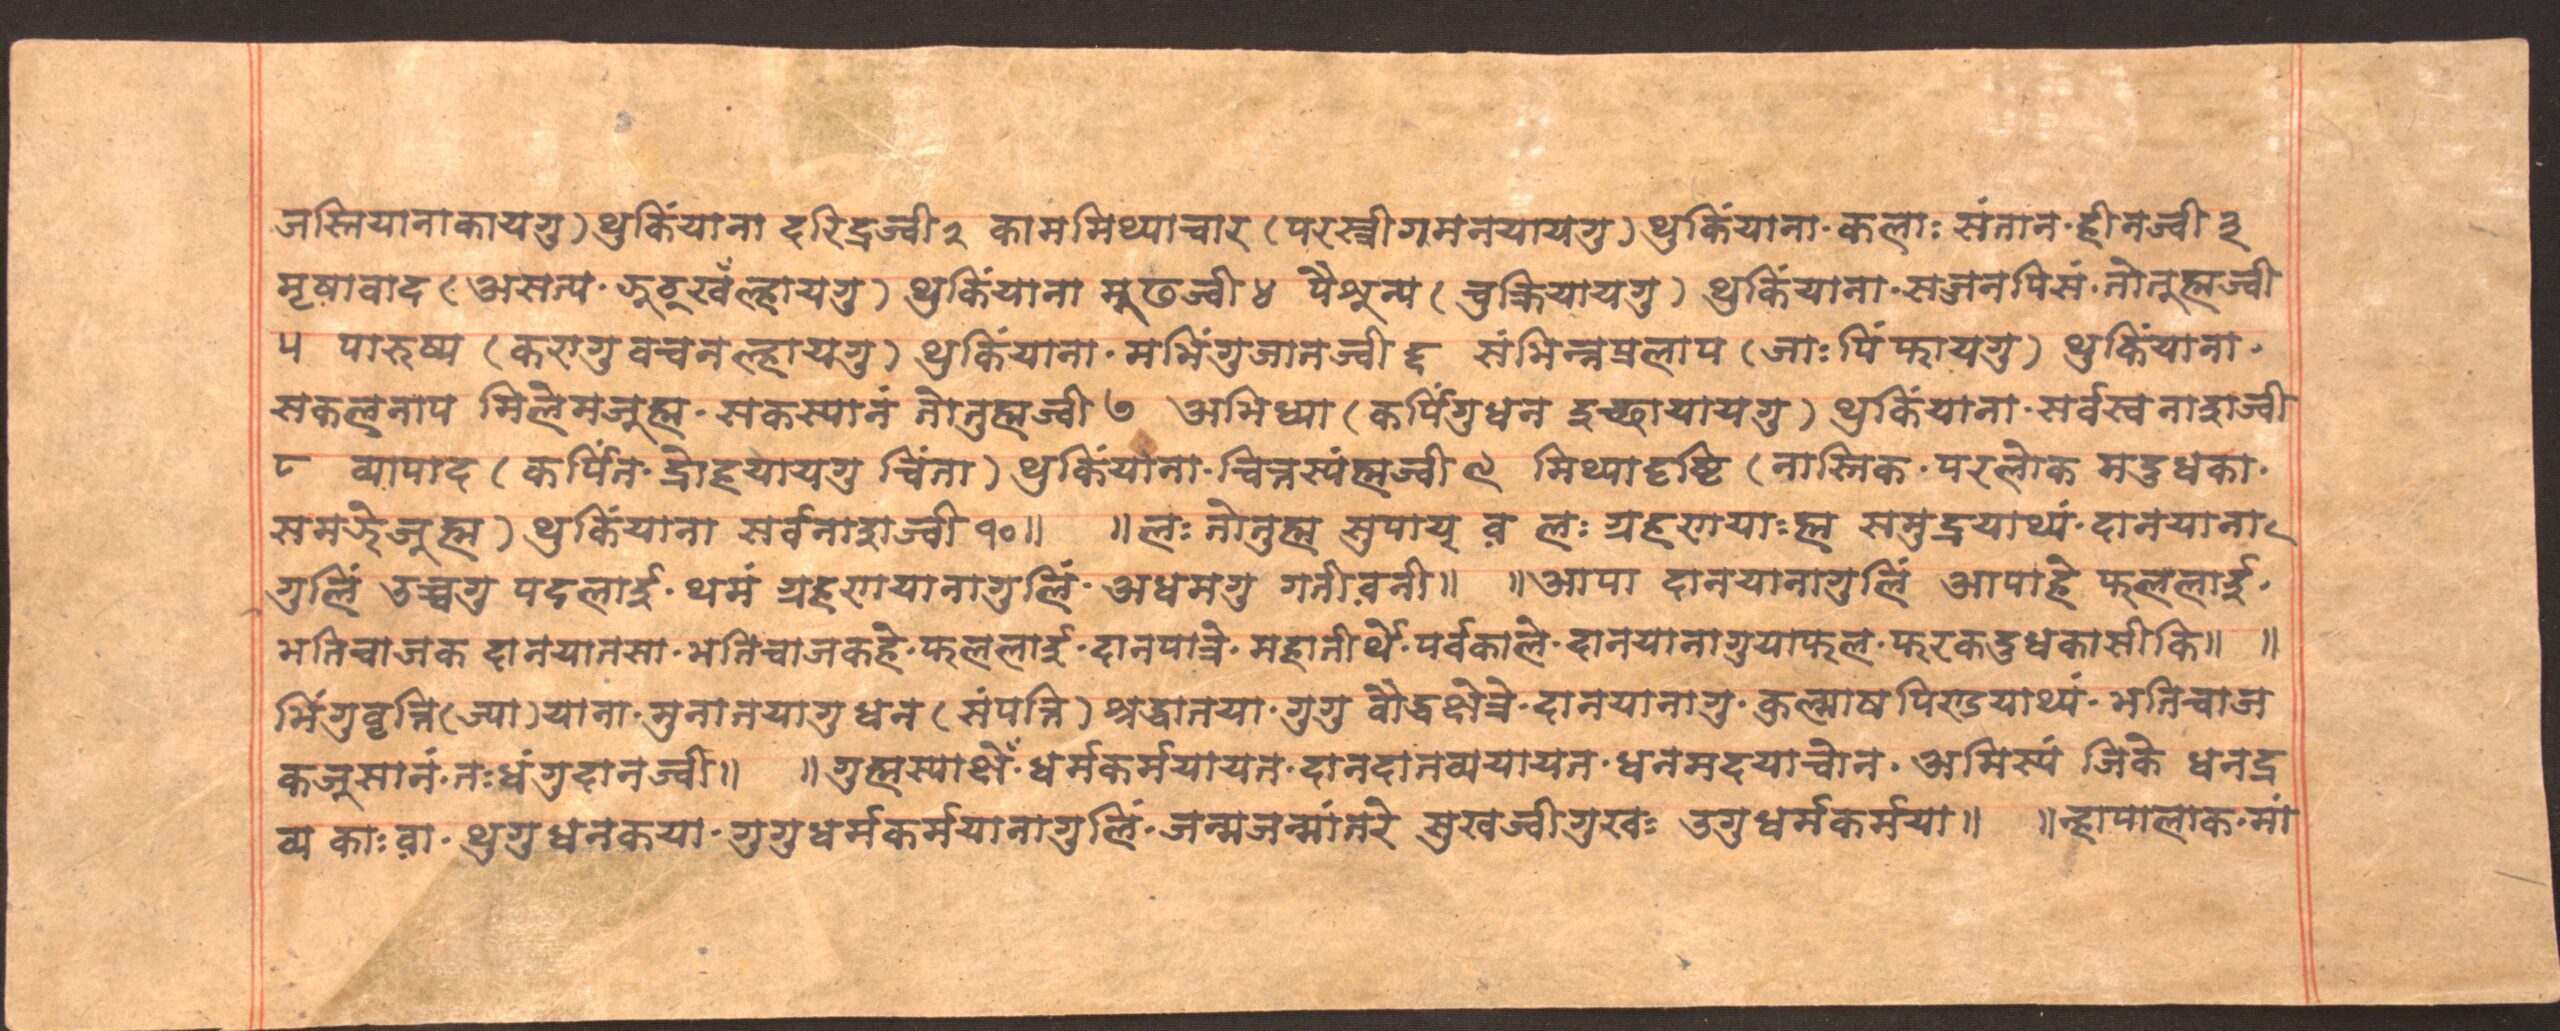 जस्तियानाकायगु) थुकिंयाना दरिद्रज्वी २ काममिथ्याचार (परस्त्रीगमनयायगु) थुकिंयाना·कलाः संतान·हीनज्वी ३
मृषावाद (असत्य·झुठ्खँल्हायगु) थुकिंयाना मूढज्वी ४ पैशून्य (चुक्लियायगु) थुकिंयाना·सज्जनपिसं·तोतुह्मज्वी
५ पारुष्य (करागु वचनल्हायगु) थुकिंयाना·मभिंगुजानज्वी ६ संभिन्नप्रलाप (जाः पिं फायगु) थुकिंयाना·
सकलनाप मिलेमजूह्म·सकस्यानं तोतुह्मज्वी ७ अभिध्या (कर्पिंगुधन इच्छायायगु) थुकिंयाना·सर्वस्व नाशज्वी
८ व्यापाद (कर्पिंत·द्रोहयायगु चिंता) थुकिंयाना·चित्तस्यंह्मज्वी ९ मिथ्यादृष्टि (नास्तिक·परलोक मदुधका·
समझेजूह्म) थुकिंयाना सर्वनाशज्वी १०॥ ॥लः तोतुह्म सुपाय् व लः ग्रहणयाःह्म समुद्रयाथ्यं·दानयाना
गुलिं उच्चगु पदलाई·थमं ग्रहणयानागुलिं·अधमगु गतीवनी॥ ॥आपा दानयानागुलिं आपाहे फललाई·
भतिचाजक दानयातसा·भतिचाजकहे·फललाई·दानपात्रे·महातीर्थे·पर्वकाले·दानयानागुयाफल·फरकदुधकासीकि॥ ॥
भिंगुवृत्ति(ज्या)याना·मुनातयागु धन (संपत्ति) श्रद्धातया·गुगु बौद्धक्षेत्रे·दानयानागु·कुल्माष पिण्डयाथ्यं·भतिचाज
कजूसानं·तःधंगुदानज्वी॥ ॥गुह्मस्याखेँ·धर्मकर्मयायत·दानदातव्ययायत·धनमदयाचोन·अमिस्यं जिके धनद्र
व्य काःवा·थुगुधनकया·गुगुधर्मकर्मयानागुलिं·जन्मजन्मांतरे सुखज्वीगुखः उगुधर्मकर्मया॥ ॥न्हापालाक·मां